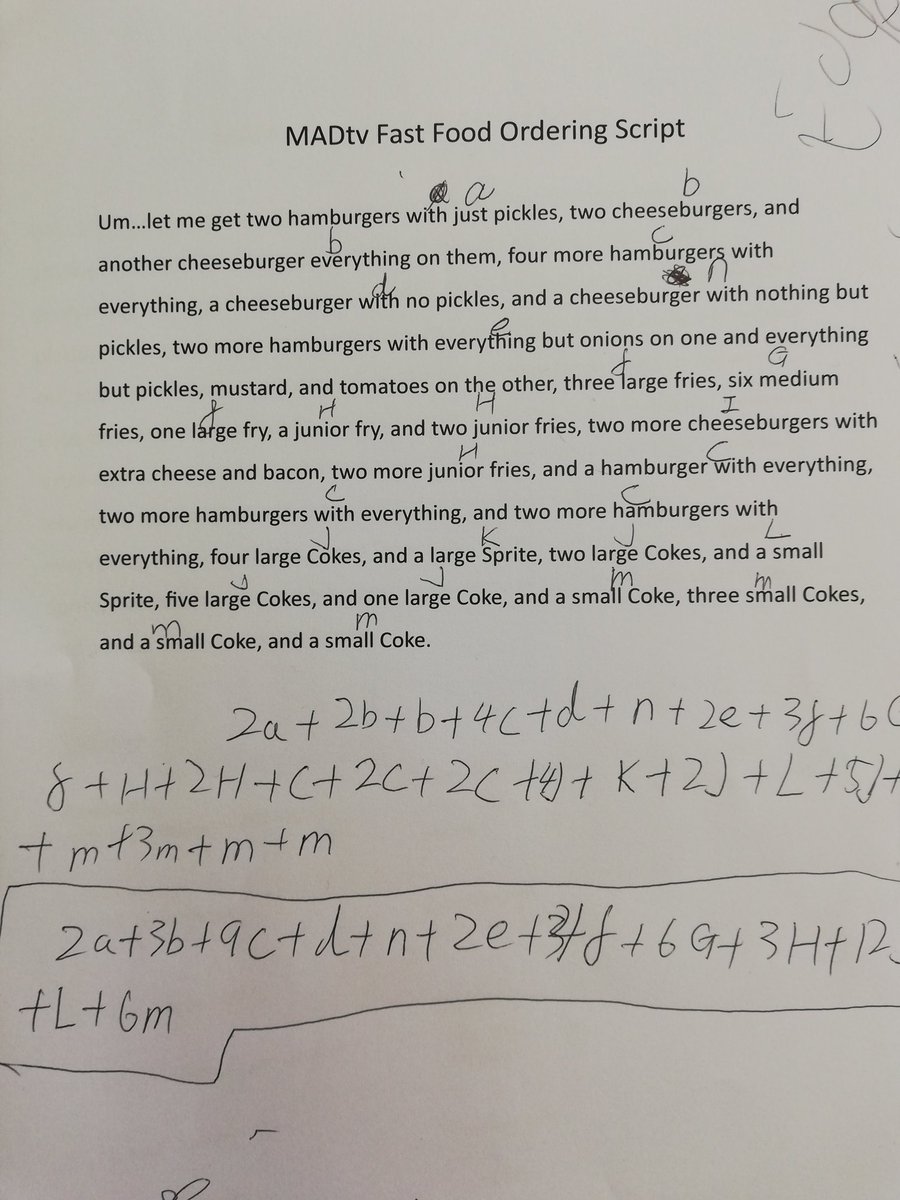 MADtv Fast Food Ordering Script
a b
Um...let me get two hamburgers with just pickles, two cheeseburgers, and
b C
another cheeseburger everything on them, four more hamburgers with
d n
everything, a cheeseburger with no pickles, and a cheeseburger with nothing but
e
pickles, two more hamburgers with everything but onions on one and everything
f G
but pickles, mustard, and tomatoes on the other, three large fries, six medium
f H H I
fries, one large fry, a junior fry, and two junior fries, two more cheeseburgers with
H C
extra cheese and bacon, two more junior fries, and a hamburger with everything,
C C
two more hamburgers with everything, and two more hamburgers with
J K J L
everything, four large Cokes, and a large Sprite, two large Cokes, and a small
J J m m
Sprite, five large Cokes, and one large Coke, and a small Coke, three small Cokes,
m m
and a small Coke, and a small Coke.
2a + 2b + b + 4c + d + n + 2e + 3f + 6G
f + H + 2H + C + 2C + 2C + 4J + K + 2J + L + 5J +
+ m + 3m + m + m
2a + 3b + 9c + d + n + 2e + 4f + 6G + 3H + 12J
+ L + 6m